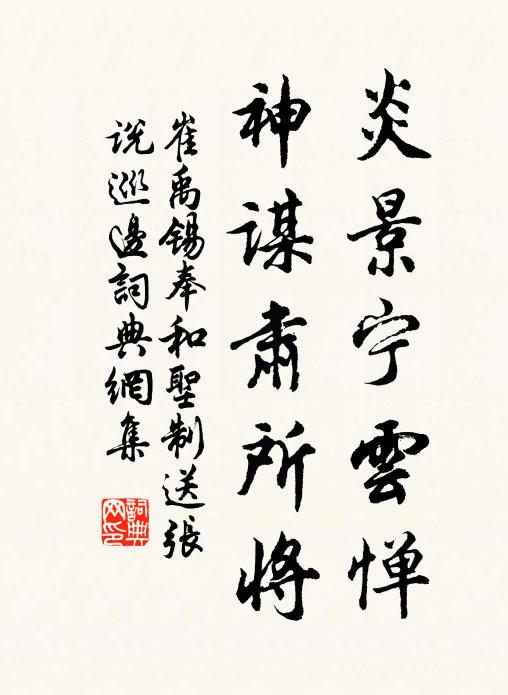 炎景宁雲惮
神謀肅所將
崔禹錫奉和聖制送張
说巡邊詞典網集
詞典网印